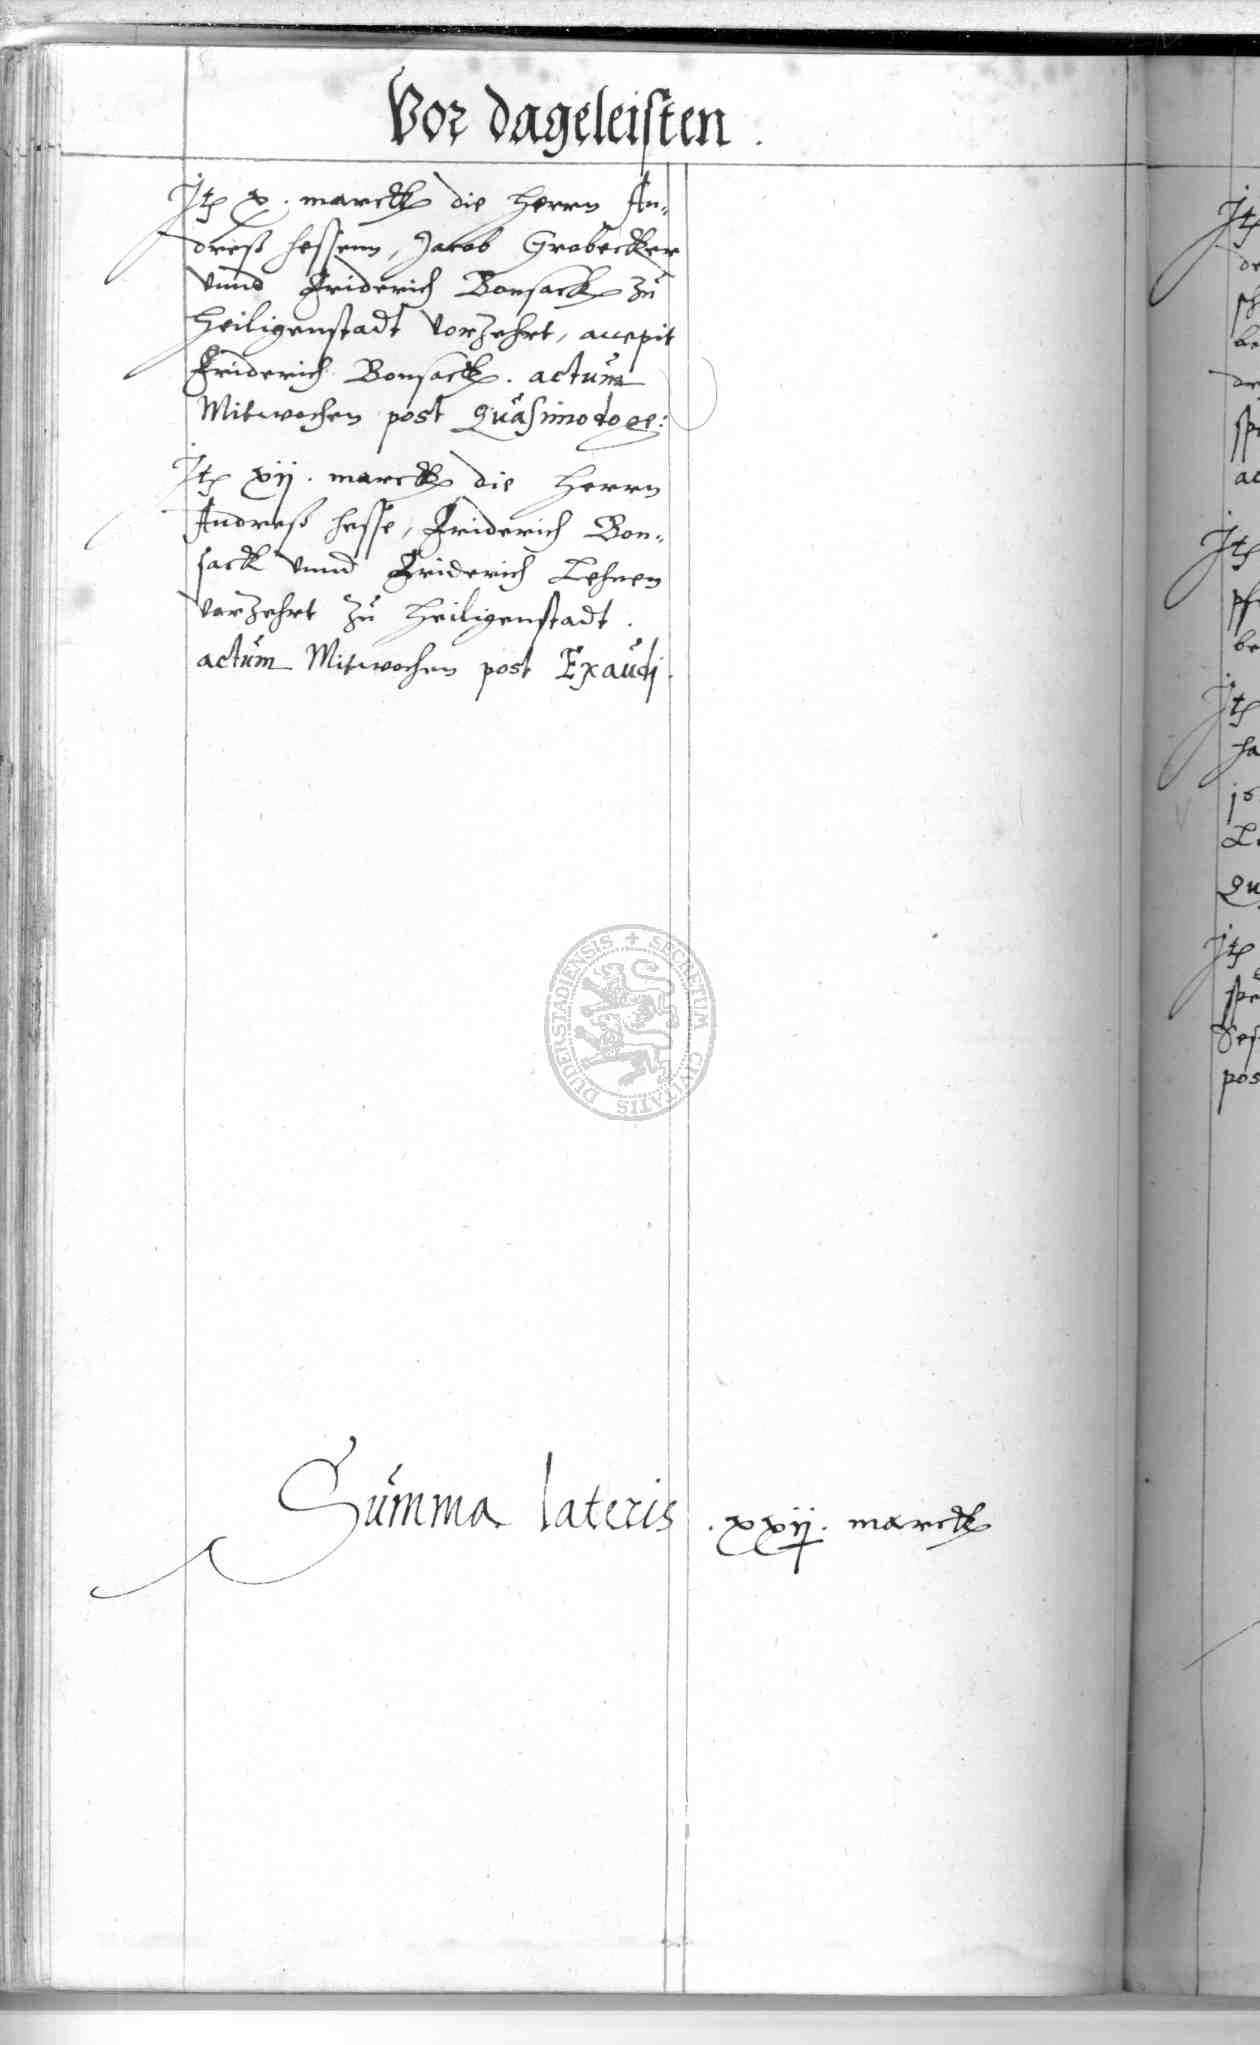 Vor dageleisten.
Jt x. marck die Herrn An-
dreß Hessenn, Jacob Grobecker
vnnd Friderich Bonsack zů
Heiligenstadt vorzehrt, accepit
Friderich Bonsack. actům
Mitwochen post Quasimodoge:
Jt xij. marck die Herrn
Andreß Hesse, Friderich Bon-
sack vnnd Friderich Lehnen
vorzehrt zů Heiligenstadt.
actům Mitwochen post Exaůdj.
DUDERSTADIENSIS + SECRETUM CIVITATIS
Sům̃a lateris . xxij. marck